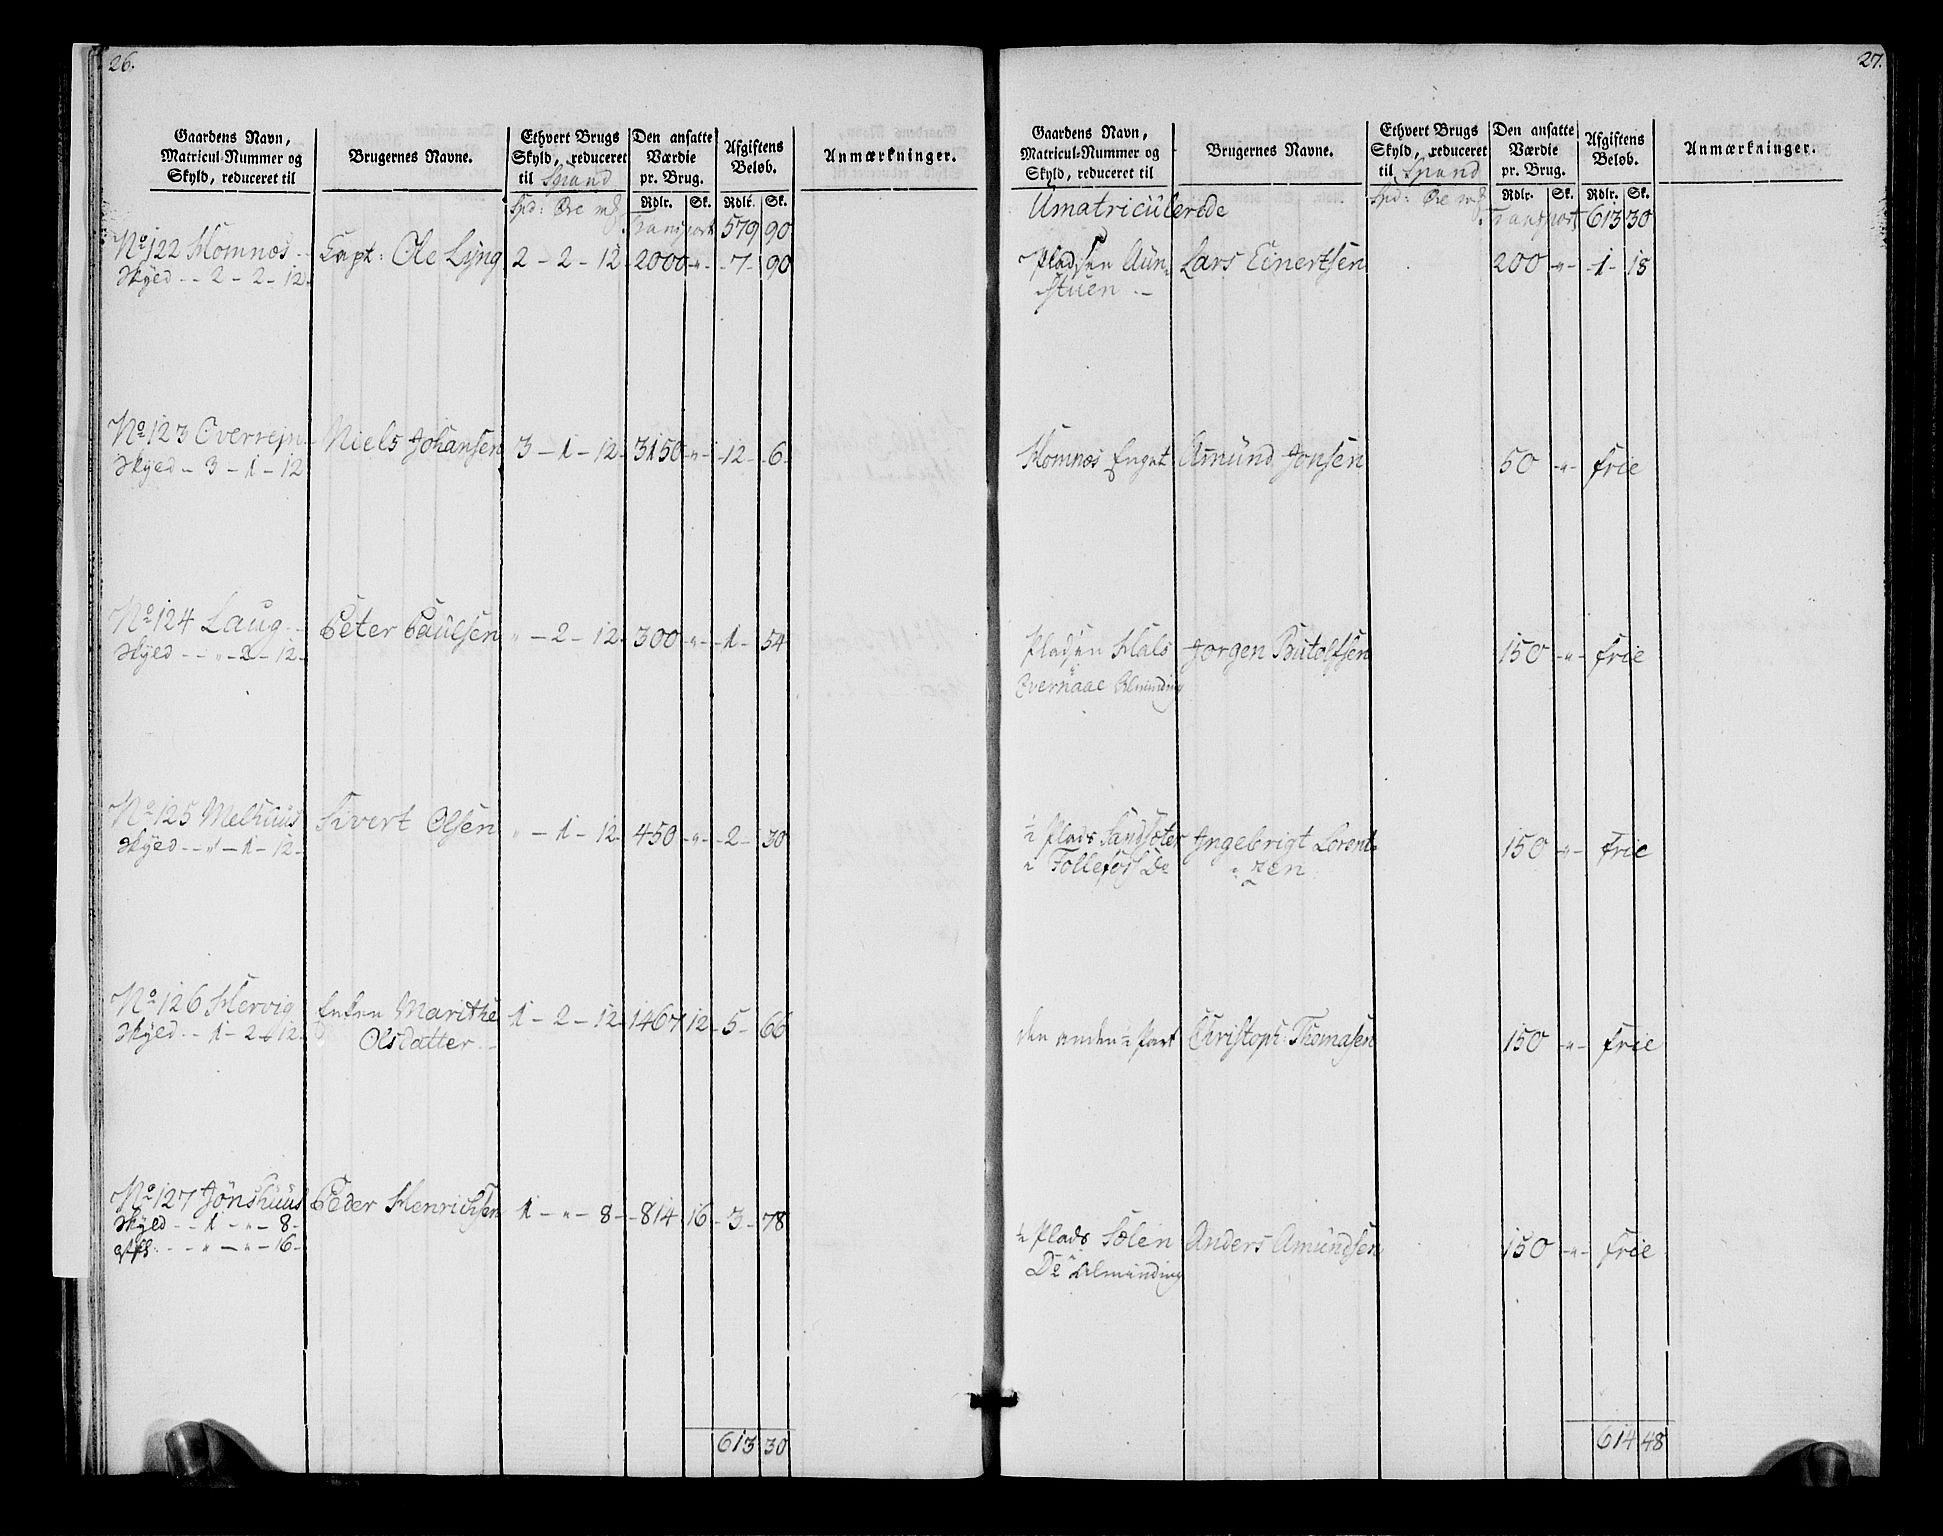 26.
Gaardens Navn, Matricul-Nummer og Skyld, reduceret til | Brugernes Navne. | Ethvert Brugs Skyld, reduceret til Spand | Den ansatte Værdie pr. Brug. | Afgiftens Beløb. | Anmærkninger.
Spd: Øre mß | Rdlr. | Sk. | Rdlr. | Sk.
Transport 579 90
No 122 Homnæs | Capt: Ole Lyng | 2 - 2 - 12 | 2000 - " - | 7 - | 90
Skyed - - 2 - 2 - 12
No 123 Overrejn | Niels Johansen | 3 - 1 - 12 | 3150 - " - | 12 - | 6
Skyed - 3 - 1 - 12
No 124 Laug | Peter Paulsen | " - 2 - 12 | 300 - " - | 1 - | 54
Skyed - - " - 2 - 12
No 125 Melhuus | Sivert Olsen | " - 1 - 12 | 450 - " - | 2 - | 30
Skyed - - " - 1 - 12
No 126 Hervig | Enken Marithe | 1 - 2 - 12 | 1467 | 12 | 5 - | 66
Skyed - - 1 - 2 - 12 | Olsdatter
No 127 Jönshuus | Peder Henrichsen | 1 - " - 8 | 814 | 16 | 3 - | 78
Skyed - - 1 - " - 8
- - " - " - 16
613 30
27.
Gaardens Navn, Matricul-Nummer og Skyld, reduceret til | Brugernes Navne. | Ethvert Brugs Skyld, reduceret til Spand | Den ansatte Værdie pr. Brug. | Afgiftens Beløb. | Anmærkninger.
Spd: Øre mß | Rdlr. | Sk. | Rdlr. | Sk.
Umatriculerede | Transport 613 30
Pladsen Aun- | Lars Einertsen | 200 - " - | 1 - | 18
stuen
Homnæs Enget | Amund Jonsen | 50 - " - | frie
Pladsen Hals | Jorgen Butolfsen | 150 - " - | frie
Overnaae Alminding
½ Plads Sandsæter | Ingebrigt Lorent- | 150 - " - | frie
Follefos Do | zen
den anden ½ Part | Christoph: Thomasen | 150 - " - | frie
½ Plads Sælen | Anders Amundsen | 150 - " - | frie
Do Alminding
614 48